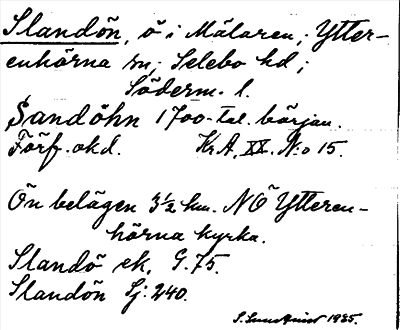 Slandön, ö i Mälaren; Ytter-
enhörna sn; Selebo hd;
Söderm. l.
Sandöhn 1700-tal. början.
Förf. okd. Kr.A. XX. N:o 15.
Ön belägen 3½ km. NÖ Ytteren-
hörna kyrka.
Slandö ek. G. 75.
Slandön Sj: 240.
S. Lundkvist 1935.